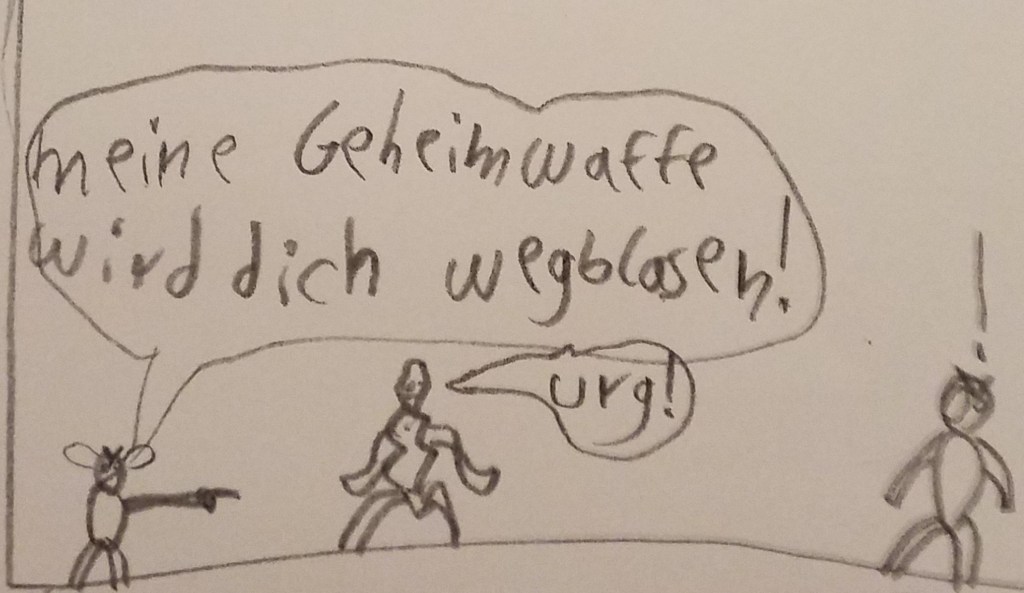 meine Geheimwaffe
wird dich wegblasen!
urg!
!